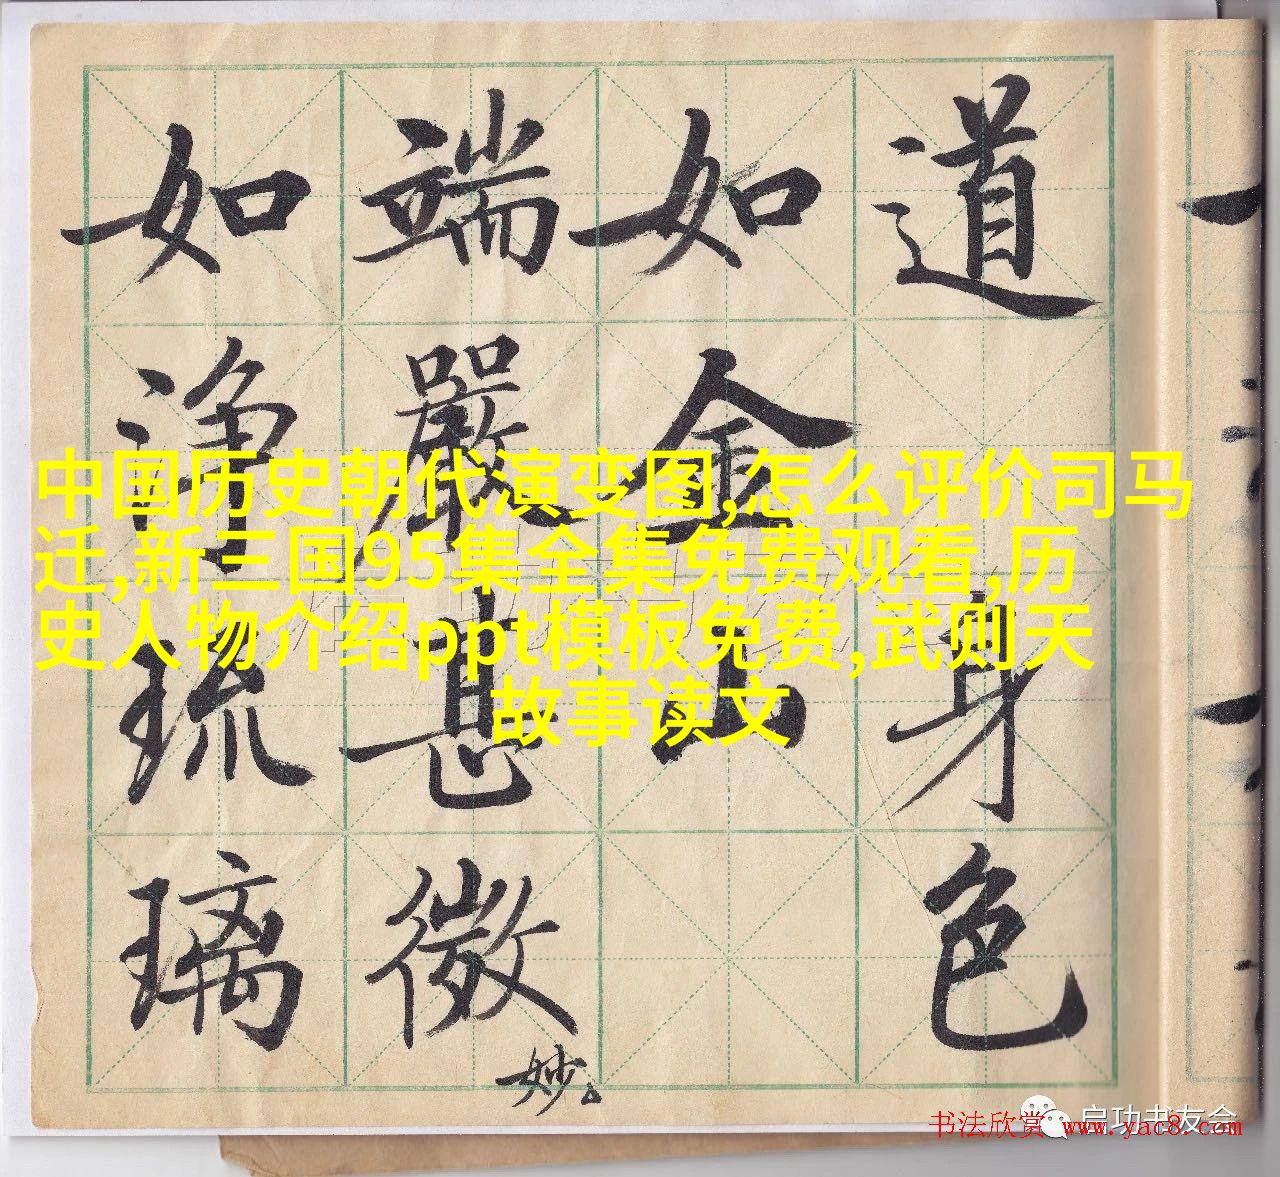 道
身色
如金山
端嚴甚微
妙
如淨琉璃
中国历史朝代演变图,怎么评价司马
迁,新三国95集全集免费观看,历
史人物介绍ppt模板免费,武则天
故事读文
启功书友会
书法欣赏 www.yac8.com